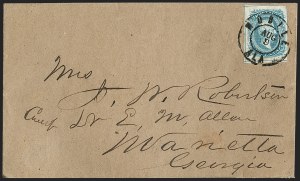 MOBILE
AUG
ALA
Mrs J. W. Robertson
Care Dr E. M. Allen
Marietta
Georgia